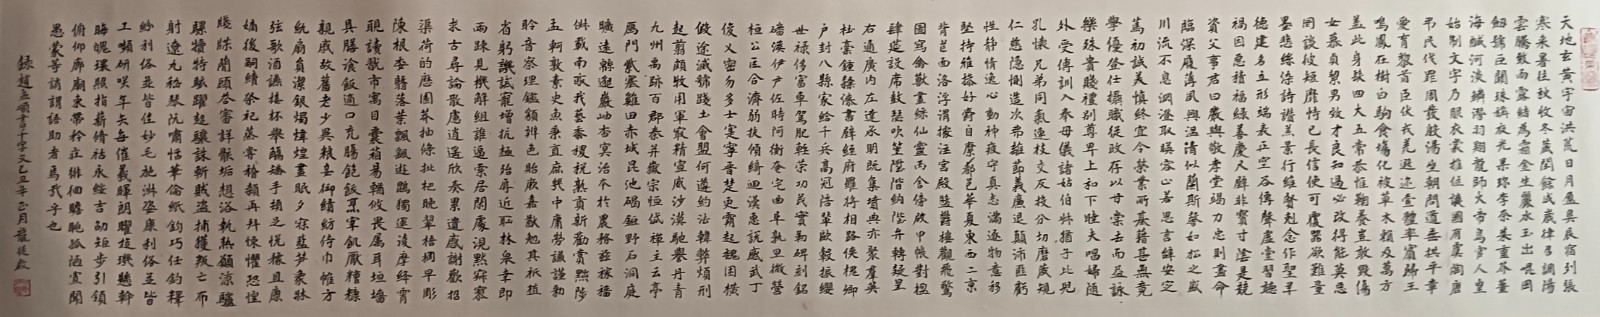 天地玄黃宇宙洪荒日月盈昃辰宿列張
寒來暑往秋收冬藏閏餘成歲律召調陽
雲騰致雨露結為霜金生麗水玉出崑岡
劍號巨闕珠稱夜光果珍李柰菜重芥薑
海鹹河淡鱗潛羽翔龍師火帝鳥官人皇
始制文字乃服衣裳推位讓國有虞陶唐
弔民伐罪周發殷湯坐朝問道垂拱平章
愛育黎首臣伏戎羌遐邇壹體率賓歸王
鳴鳳在樹白駒食場化被草木賴及萬方
蓋此身髮四大五常恭惟鞠養豈敢毀傷
女慕貞絜男效才良知過必改得能莫忘
罔談彼短靡恃己長信使可覆器欲難量
墨悲絲染詩讚羔景行維賢剋念作聖羊
德建名立形端表正空谷傳聲虛堂習聽
禍因惡積福緣善慶尺璧非寶寸陰是競
資父事君曰嚴與敬孝當竭力忠則盡命
臨深履薄夙興溫清似蘭斯馨如松之盛
川流不息淵澄取暎容止若思言辭安定
篤初誠美慎終宜令榮業所基藉甚無竟
學優登仕攝職從政存以甘棠去而益詠
樂殊貴賤禮別尊卑上和下睦夫唱婦隨
外受傅訓入奉母儀諸姑伯叔猶子比兒
孔懷兄弟同氣連枝交友投分切磨箴規
仁慈隱惻造次弗離節義廉退顛沛匪虧
性靜情逸心動神疲守真志滿逐物意移
堅持雅操好爵自縻都邑華夏東西二京
背芒面洛浮渭據涇宮殿盤鬱樓觀飛驚
圖寫禽獸畫綵仙靈丙舍傍啟甲帳對楹
肆筵設席鼓瑟吹笙陞階納陛弁轉疑星
右通廣內左達承明既集墳典亦聚群英
杜稾鍾隸漆書壁經府羅將相路俠槐卿
戶封八縣家給千兵高冠陪輦驅轂振纓
世祿侈富車駕肥輕策功茂實勒碑刻銘
磻溪伊尹佐時阿衡奄宅曲阜孰微旦營
桓公匡合濟弱扶傾綺迴漢惠說感武丁
俊乂密勿多士寔寧晉楚更霸趙魏困橫
假途滅虢踐土會盟何遵約法韓弊煩刑
起翦頗牧用軍最精宣威沙漠馳譽丹青
九州禹跡百郡秦并嶽宗恒岱禪主云亭
雁門紫塞雞田赤城昆池碣鉅野石洞庭
曠遠緜邈巖岫杳冥治本於農務茲稼穡
俶載南畝我藝黍稷稅熟貢新勸賞黜陟
孟軻敦素史魚秉直庶幾中庸勞謙謹勑
聆音察理鑑貌辨色貽厥嘉猷勉其祇植
省躬譏誡寵增抗極殆辱近恥林皋幸即
兩疎見機解組誰逼索居閑處沉默寂寥
求古尋論散慮逍遙欣奏累遣慼謝歡招
渠荷的歷園莽抽條枇杷晚翠梧桐早彫
陳根委翳落葉飄颻遊鵾獨運凌摩絳霄
耽讀翫市寓目囊箱易輶攸畏屬耳垣墻
具膳飡飯適口充腸飽飫烹宰飢厭糟糠
親戚故舊老少異糧妾御績紡侍巾帷房
紈扇員潔銀燭煒煌晝眠夕寐藍筍象床
弦歌酒讌接杯舉觴矯手頓足悅豫且康
嫡後嗣續祭祀蒸嘗稽顙再拜悚懼恐惶
牋牒簡顧答審詳骸垢想浴執熱願涼驢
騾犢特駭躍超驤誅斬賊盜捕獲叛亡布
射遼丸嵇琴阮嘯恬筆倫紙鈞巧任釣釋
紛利俗並皆佳妙毛施淑姿康利俗並皆
工顰研笑年矢每催羲暉朗曜琁璣懸斡
晦魄環照指薪脩祜永綏吉劭矩步引領
俯仰廊廟束帶矜莊徘徊瞻眺孤陋寡聞
愚蒙等誚謂語助者焉哉乎也
錄趙孟頫書千字文乙丑年正月